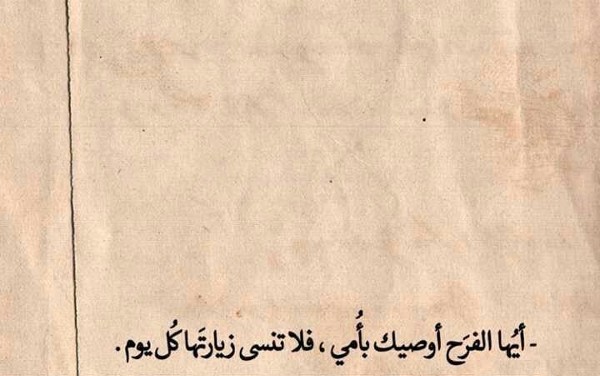 - أيُها الفرَح أوصيك بأُمي ، فلا تنسى زيارتَها كُل يوم .